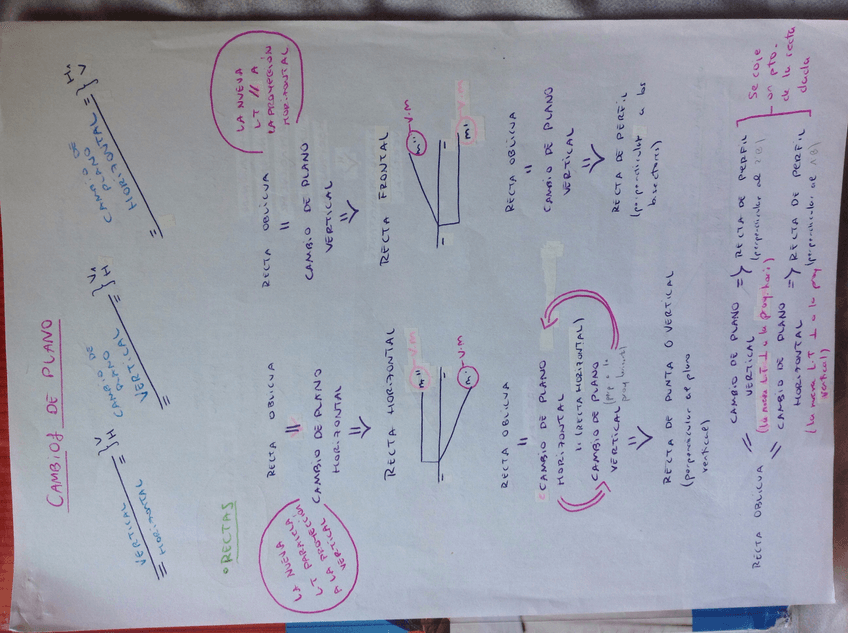 CAMBIOS DE PLANO
VERTICAL
HORIZONTAL
} V
H
CAMBIO DE
PLANO
VERTICAL
} V1
H
CAMBIO DE
PLANO
HORIZONTAL
} V
H1
• RECTAS
LA NUEVA
LT PARALELA
A LA PROYECCIÓN
VERTICAL
RECTA OBLICUA
CAMBIO DE PLANO
HORIZONTAL
RECTA HORIZONTAL
m''
V.M
m'
V.M
LA NUEVA
LT // A
LA PROYECCIÓN
HORIZONTAL
RECTA OBLICUA
CAMBIO DE PLANO
VERTICAL
RECTA FRONTAL
m''
V.M
m'
RECTA OBLICUA
CAMBIO DE PLANO
HORIZONTAL
(RECTA HORIZONTAL)
CAMBIO DE PLANO
VERTICAL
RECTA DE PUNTA O VERTICAL
(perpendicular al plano
vertical)
RECTA OBLICUA
CAMBIO DE PLANO
VERTICAL
RECTA DE PERFIL
(perpendicular a los
bisectores)
RECTA OBLICUA
CAMBIO DE PLANO => RECTA DE PERFIL
VERTICAL (perpendicular al 2ºB)
(la nueva LT ⊥ a la proy. hori)
CAMBIO DE PLANO => RECTA DE PERFIL
HORIZONTAL (perpendicular al 1ºB)
(la nueva L.T ⊥ a la proy
vertical)
Se coje
un pto.
de la recta
dada